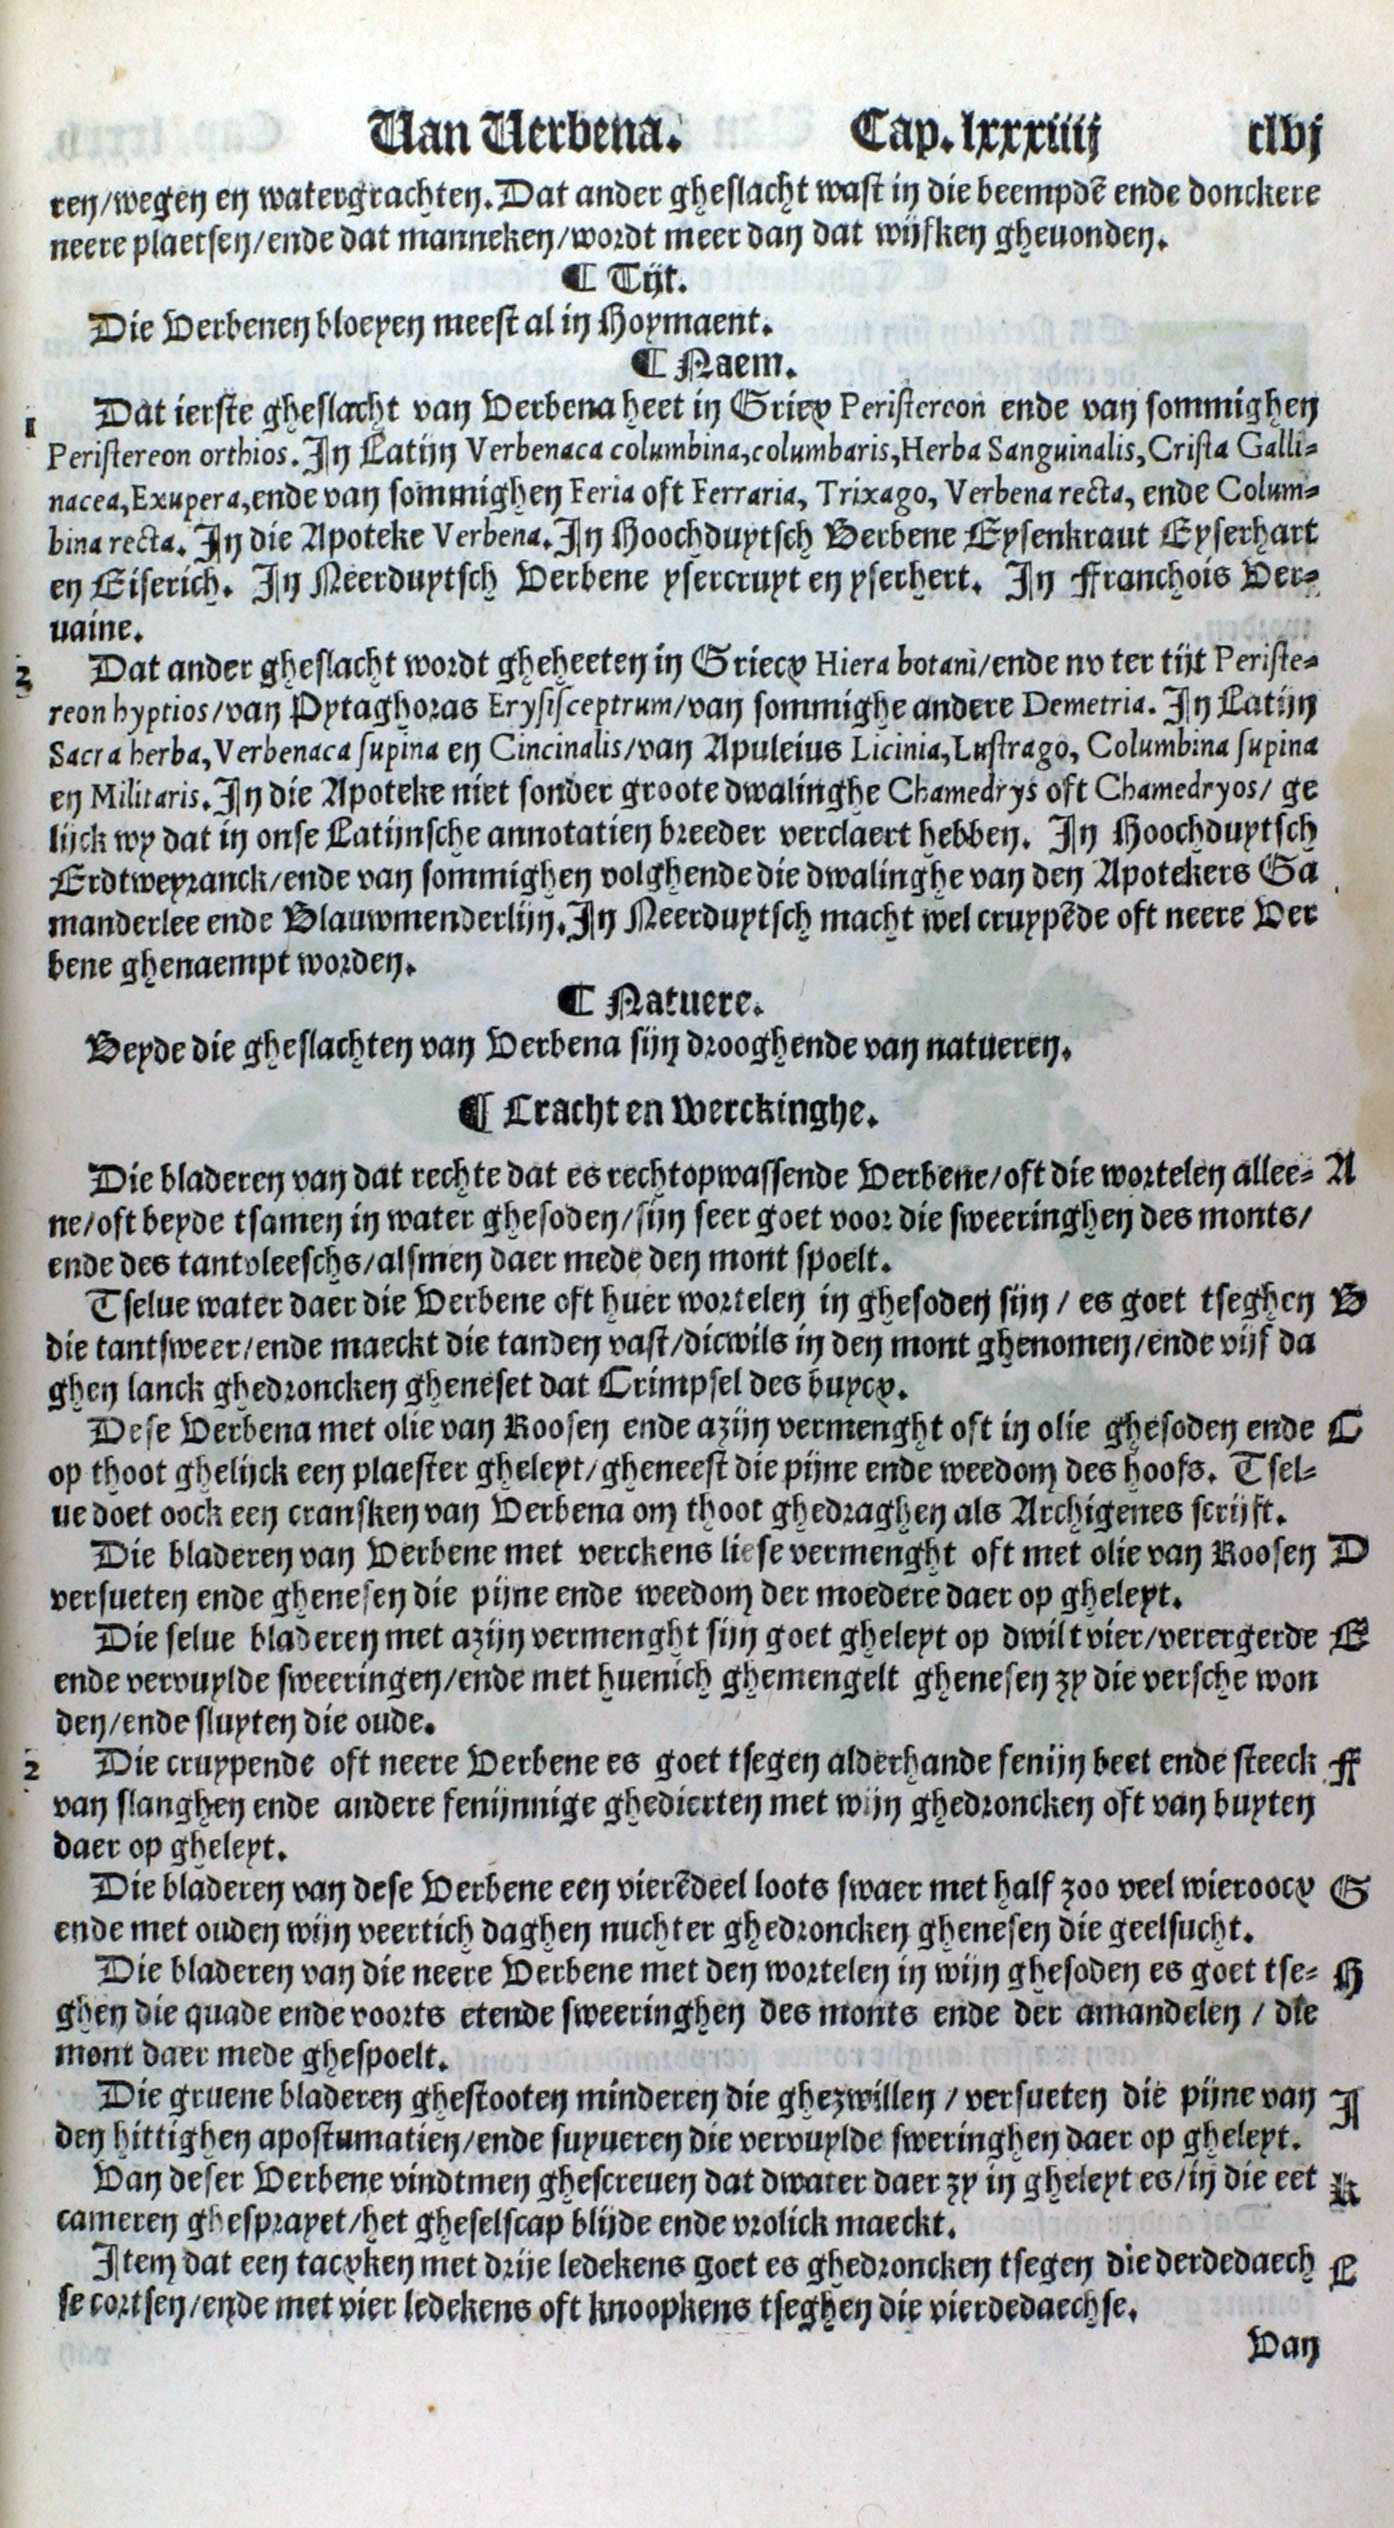 Van Verbena. Cap. lxxxiiij clvj
ren/wegen en watergrachten. Dat ander gheslacht wast in die beempdē ende donckere
neere plaetsen/ende dat manneken/wordt meer dan dat wijfken gheuonden.
¶ Tijt.
Die Verbenen bloeyen meest al in Hoymaent.
¶ Naem.
1 Dat ierste gheslacht van Verbena heet in Griecx Peristereon ende van sommighen
Peristereon orthios. In Latijn Verbenaca columbina, columbaris, Herba Sanguinalis, Crista Galli-
nacea, Exupera, ende van sommighen Feria oft Ferraria, Trixago, Verbena recta, ende Colum-
bina recta. In die Apoteke Verbena. In Hoochduytsch Verbene Eysenkraut Eyserhart
en Eiserich. In Neerduytsch Verbene ysercruyt en yserhert. In Franchois Ver-
uaine.
2 Dat ander gheslacht wordt gheheeten in Griecx Hiera botani/ende nv ter tijt Periste-
reon hyptios/van Pytaghoras Erysisceptrum/van sommighe andere Demetria. In Latijn
Sacra herba, Verbenaca supina en Cincinalis/van Apuleius Licinia, Lustrago, Columbina supina
en Militaris. In die Apoteke niet sonder groote dwalinghe Chamedrys oft Chamedryos/ ge
lijck wy dat in onse Latijnsche annotatien breeder verclaert hebben. In Hoochduytsch
Erdtweyranck/ende van sommighen volghende die dwalinghe van den Apotekers Ga
manderlee ende Blauwmenderlijn. In Neerduytsch macht wel cruypēde oft neere Ver
bene ghenaempt worden.
¶ Natuere.
Beyde die gheslachten van Verbena sijn drooghende van natueren.
¶ Cracht en Werckinghe.
Die bladeren van dat rechte dat es rechtopwassende Verbene/oft die wortelen allee- A
ne/oft beyde tsamen in water ghesoden/sijn seer goet voor die sweeringhen des monts/
ende des tantvleeschs/alsmen daer mede den mont spoelt.
Tselue water daer die Verbene oft huer wortelen in ghesoden sijn/ es goet tseghen B
die tantsweer/ende maeckt die tanden vast/dicwils in den mont ghenomen/ende vijf da
ghen lanck ghedroncken gheneset dat Crimpsel des buycx.
Dese Verbena met olie van Roosen ende azijn vermenght oft in olie ghesoden ende C
op thoot ghelijck een plaester gheleyt/gheneest die pijne ende weedom des hoofs. Tsel-
ue doet oock een cransken van Verbena om thoot ghedraghen als Archigenes scrijft.
Die bladeren van Verbene met verckens liese vermenght oft met olie van Roosen D
versueten ende ghenesen die pijne ende weedom der moedere daer op gheleyt.
Die selue bladeren met azijn vermenght sijn goet gheleyt op dwilt vier/verergerde E
ende vervuylde sweeringen/ende met huenich ghemengelt ghenesen zy die versche won
den/ende sluyten die oude.
2 Die cruypende oft neere Verbene es goet tsegen alderhande fenijn beet ende steeck F
van slanghen ende andere fenijnnige ghedierten met wijn ghedroncken oft van buyten
daer op gheleyt.
Die bladeren van dese Verbene een vierēdeel loots swaer met half zoo veel wieroocx G
ende met ouden wijn veertich daghen nuchter ghedroncken ghenesen die geelsucht.
Die bladeren van die neere Verbene met den wortelen in wijn ghesoden es goet tse- H
ghen die quade ende voorts etende sweeringhen des monts ende der amandelen / die
mont daer mede ghespoelt.
Die gruene bladeren ghestooten minderen die ghezwillen / versueten die pijne van I
den hittighen apostumatien/ende suyueren die vervuylde sweringhen daer op gheleyt.
Van deser Verbene vindtmen ghescreuen dat dwater daer zy in gheleyt es/in die eet K
cameren ghesprayet/het gheselscap blijde ende vrolick maeckt.
Item dat een tacxken met drije ledekens goet es ghedroncken tsegen die derdedaech L
se cortsen/ende met vier ledekens oft knoopkens tseghen die vierdedaechse.
Van